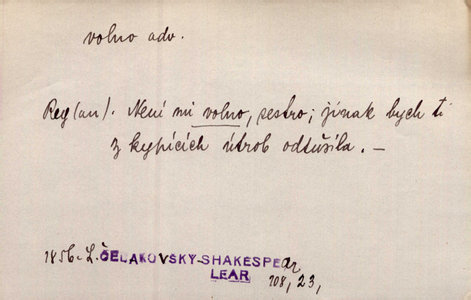 volno adv.
Reg(an). Není mi volno, sestro; jinak bych ti
z kypících útrob odtušila. —
1856. L. ČELAKOVSKY-SHAKESPEar
LEAR 108, 23,